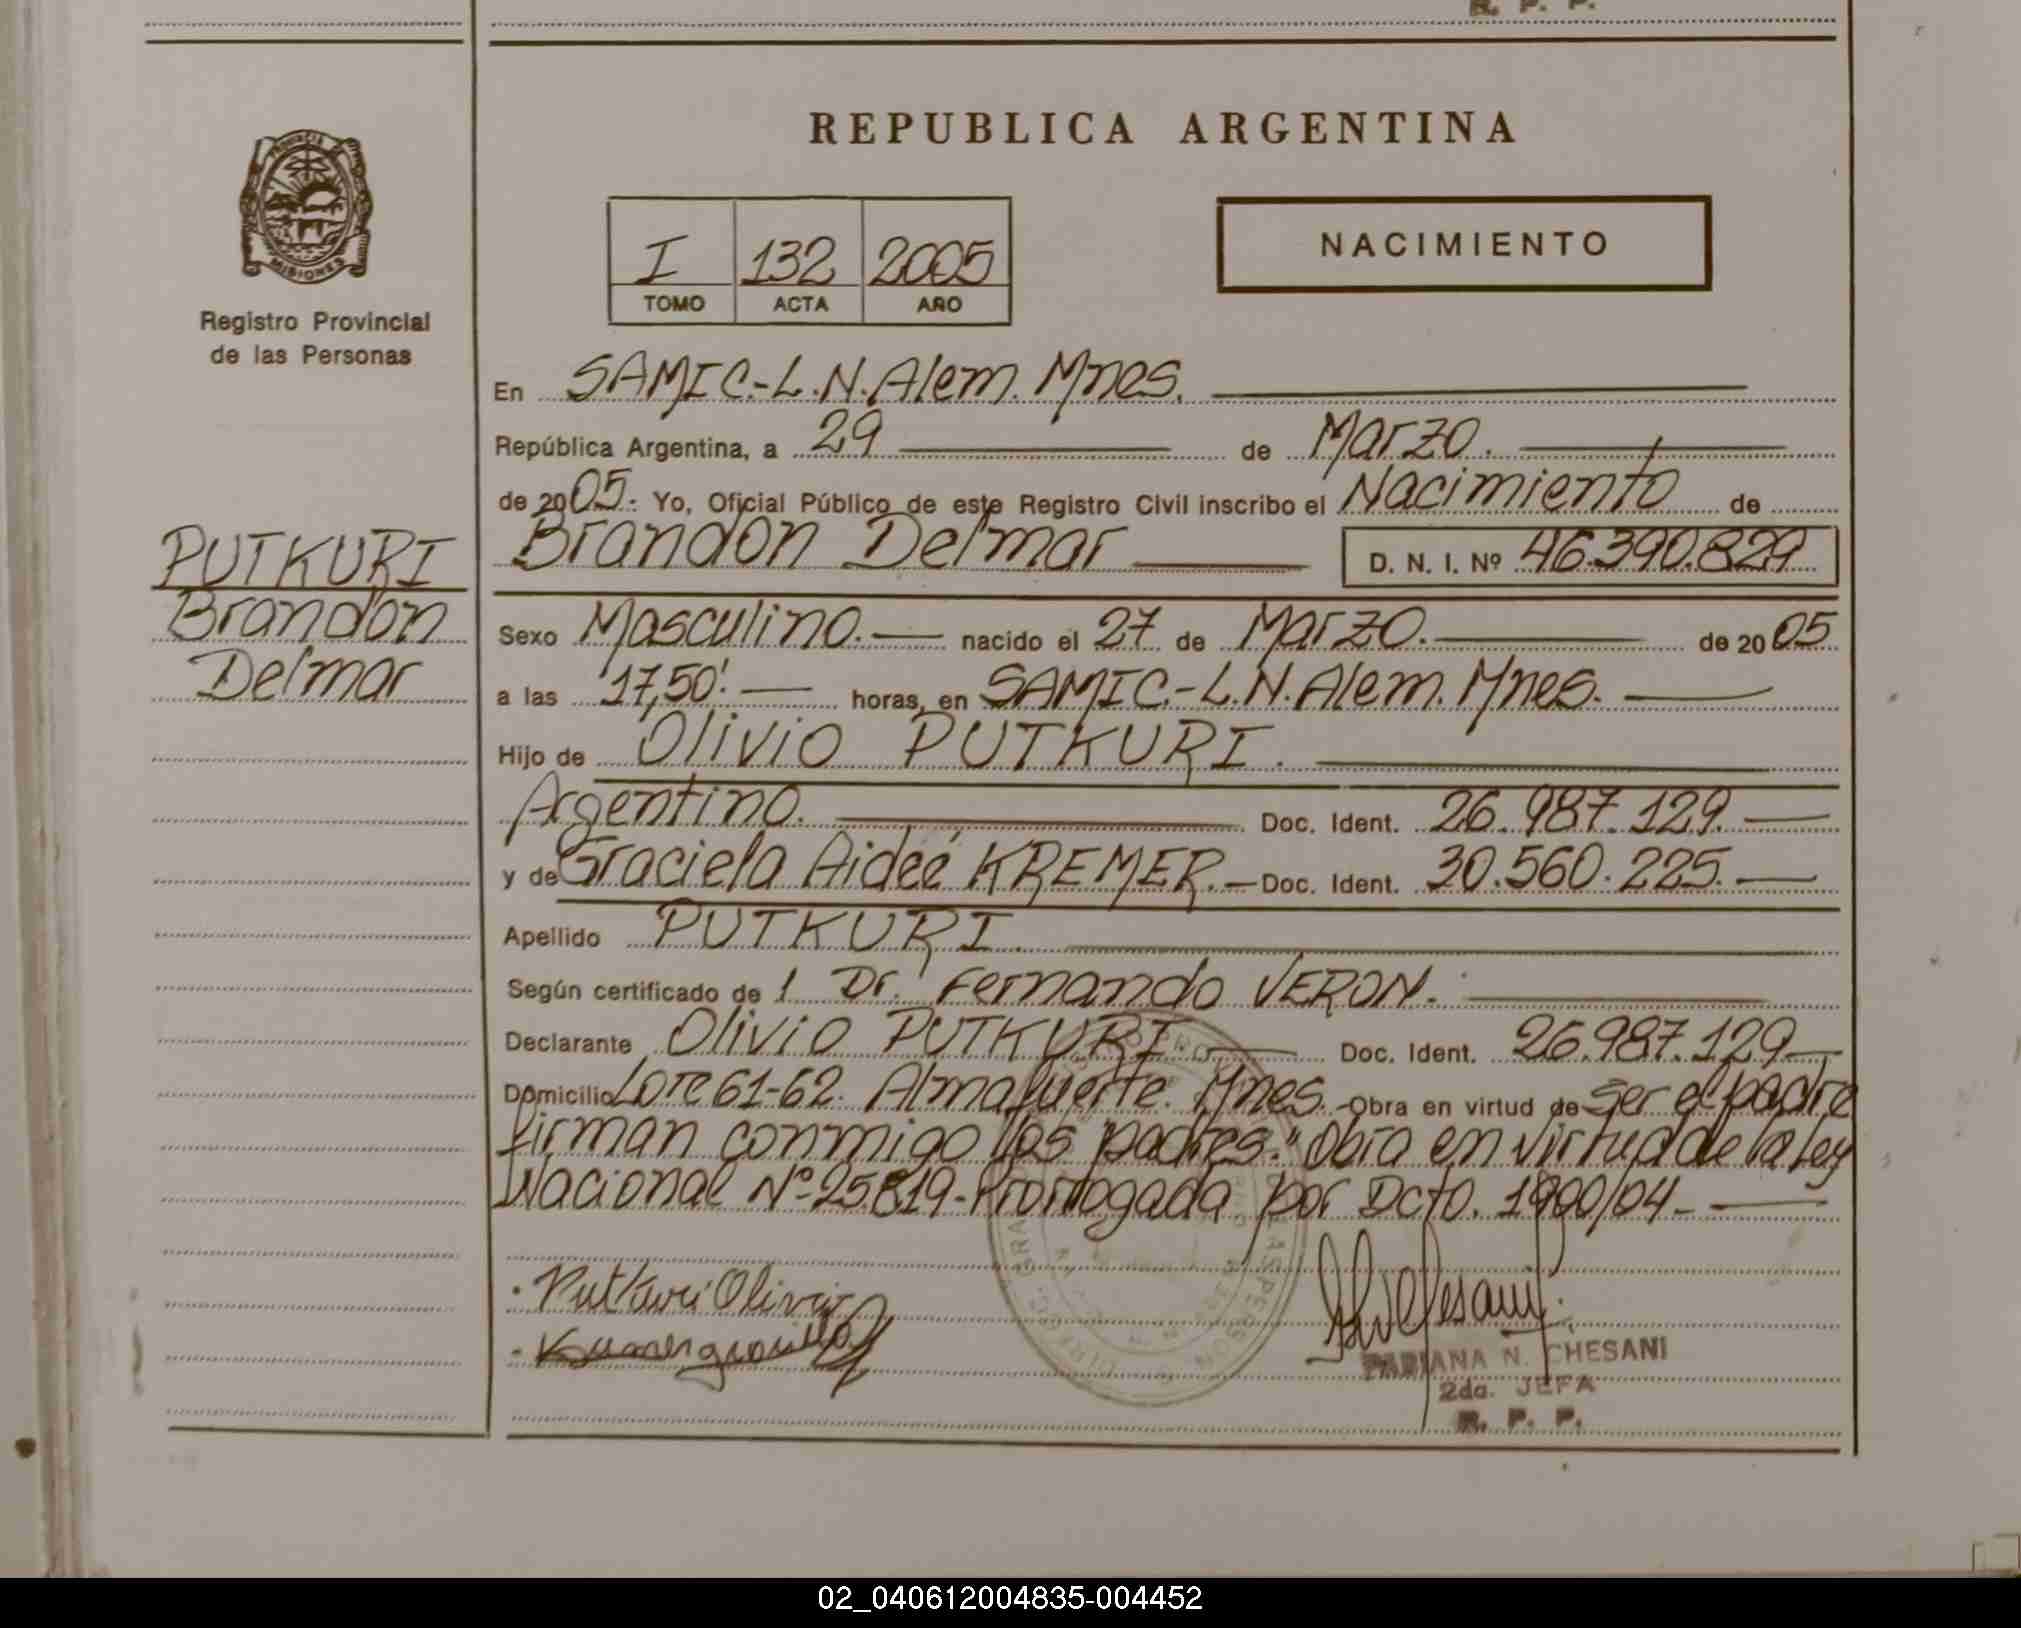 R. P. P.
REPUBLICA ARGENTINA
PROVINCIA DE
MISIONES
Registro Provincial
de las Personas
I 132 2005
TOMO ACTA AÑO
NACIMIENTO
En SAMIC.-L.N.Alem. Mnes.
República Argentina, a 29 de Marzo.
de 2005.- Yo, Oficial Público de este Registro Civil inscribo el Nacimiento de
Brandon Delmar D. N. I. Nº 46.390.829
PUTKURI
Brandon
Delmar
Sexo Masculino.- nacido el 27 de Marzo. de 2005
a las 17,50'. horas, en SAMIC.-L.N.Alem. Mnes.
Hijo de Olivio PUTKURI.
Argentino. Doc. Ident. 26.987.129.
y de Graciela Aideé KREMER.- Doc. Ident. 30.560.225.
Apellido PUTKURI.
Según certificado de 1 Dr. Fernando VERON.
Declarante Olivio PUTKURI.- Doc. Ident. 26.987.129
Domicilio Lote 61-62. Almafuerte. Mnes.- Obra en virtud de ser el padre
firman conmigo los padres." Obra en virtud de la Ley
Nacional Nº 25.819- Prorrogada por Dcto. 1900/04.-
Putkuri Olivio
FABIANA N. CHESANI
2da. JEFA
R. P. P.
02_040612004835-004452